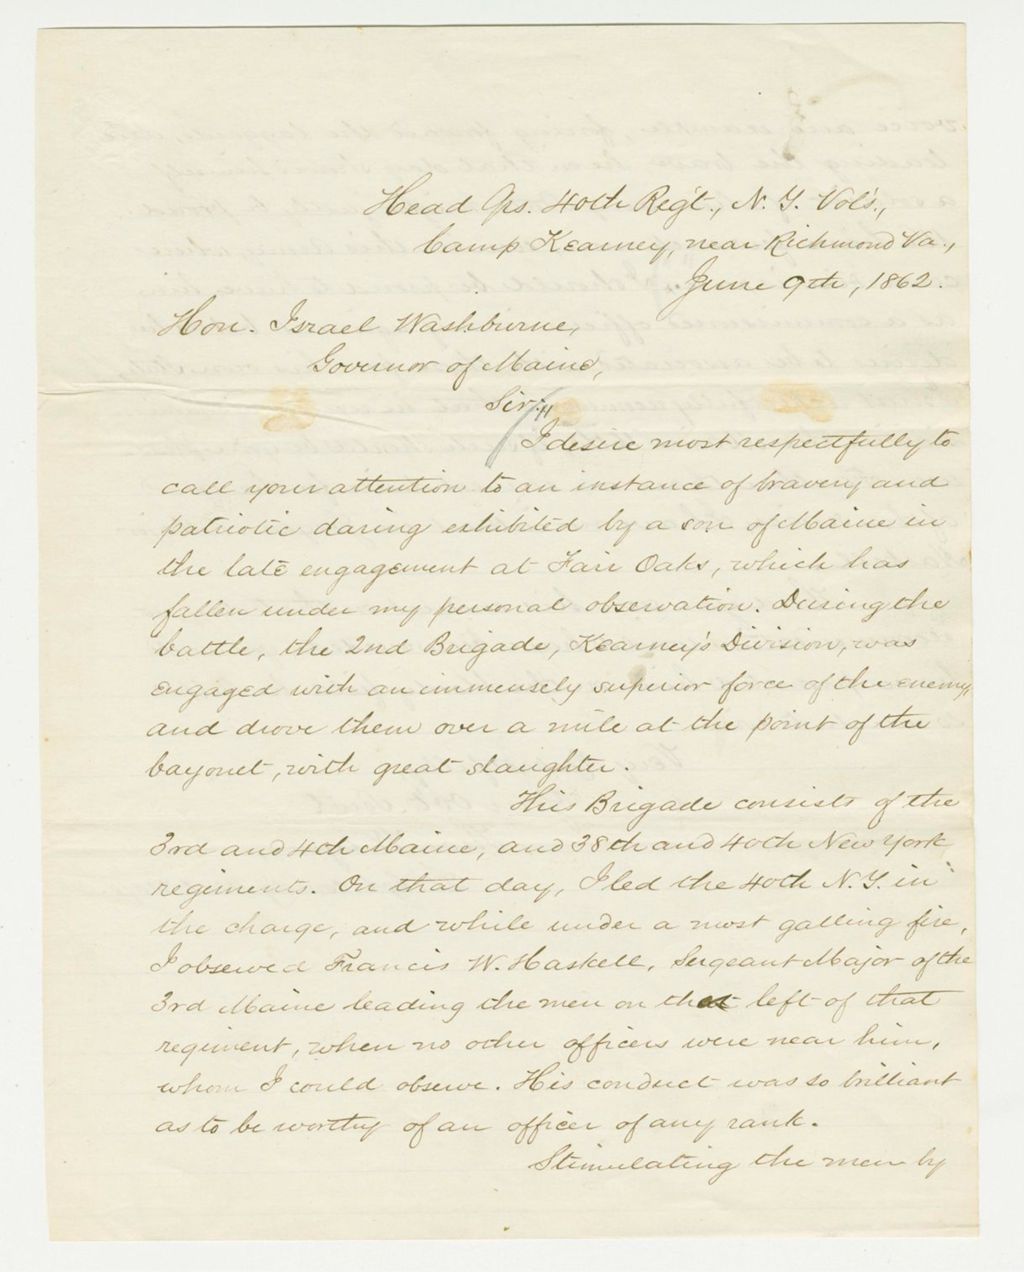 Head Qrs. 40th Reg't., N. Y. Vol's.,
Camp Kearney, near Richmond Va.,
June 9th, 1862.
Hon. Israel Washburne,
Governor of Maine,
Sir:
I desire most respectfully to
call your attention to an instance of bravery and
patriotic daring exhibited by a son of Maine in
the late engagement at Fair Oaks, which has
fallen under my personal observation. During the
battle, the 2nd Brigade, Kearney's Division, was
engaged with an immensely superior force of the enemy
and drove them over a mile at the point of the
bayonet, with great slaughter.
This Brigade consists of the
3rd and 4th Maine, and 38th and 40th New York
regiments. On that day, I led the 40th N. Y. in
the charge, and while under a most galling fire,
I observed Francis W. Haskell, Sergeant Major of the
3rd Maine leading the men on the left of that
regiment, when no other officers were near him,
whom I could observe. His conduct was so brilliant
as to be worthy of an officer of any rank.
Stimulating the men by